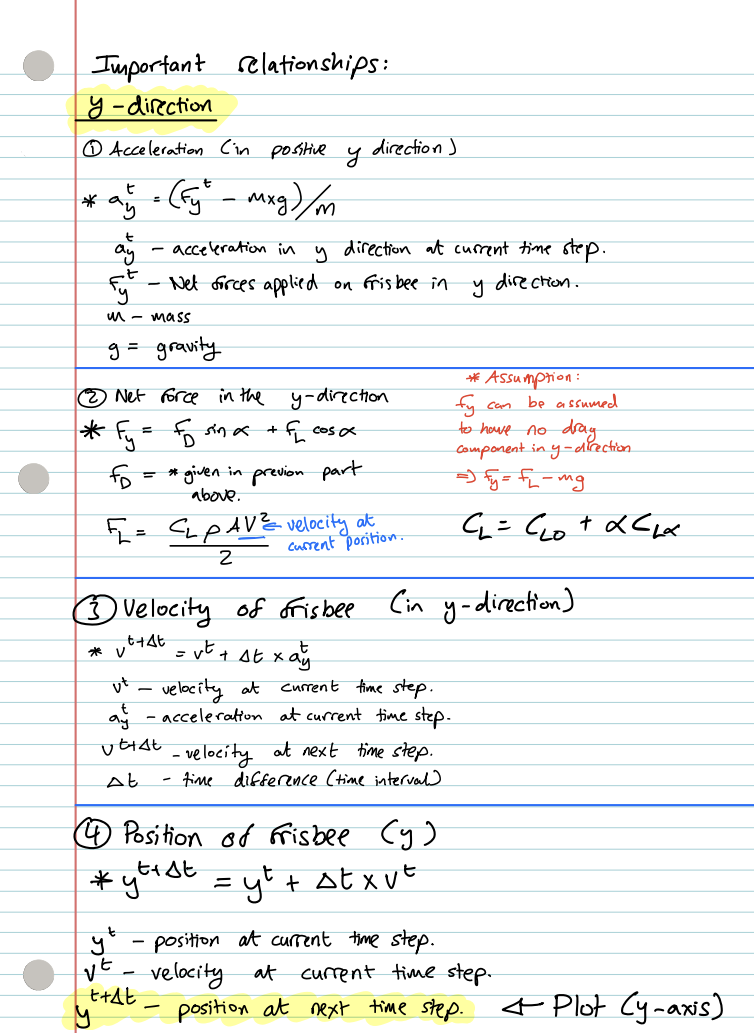 Important relationships:
y-direction
① Acceleration (in positive y direction)
* a_y^t = (F_y^t - m×g)/m
a_y^t - acceleration in y direction at current time step.
F_y^t - Net forces applied on frisbee in y direction.
m - mass
g = gravity
② Net force in the y-direction
* F_y = f_D sin α + f_L cos α
f_D = * given in previon part
above.
F_L = C_L ρ A V² / 2
← velocity at
current position.
* Assumption:
fy can be assumed
to have no drag
component in y-direction
⇒ f_y = f_L - mg
C_L = C_L0 + α C_Lα
③ Velocity of frisbee (in y-direction)
* v^{t+Δt} = v^t + Δt × a_y^t
v^t - velocity at current time step.
a_y^t - acceleration at current time step.
v^{t+Δt} - velocity at next time step.
Δt - time difference (time interval)
④ Position of frisbee (y)
* y^{t+Δt} = y^t + Δt × v^t
y^t - position at current time step.
v^t - velocity at current time step.
y^{t+Δt} - position at next time step. ← Plot (y-axis)